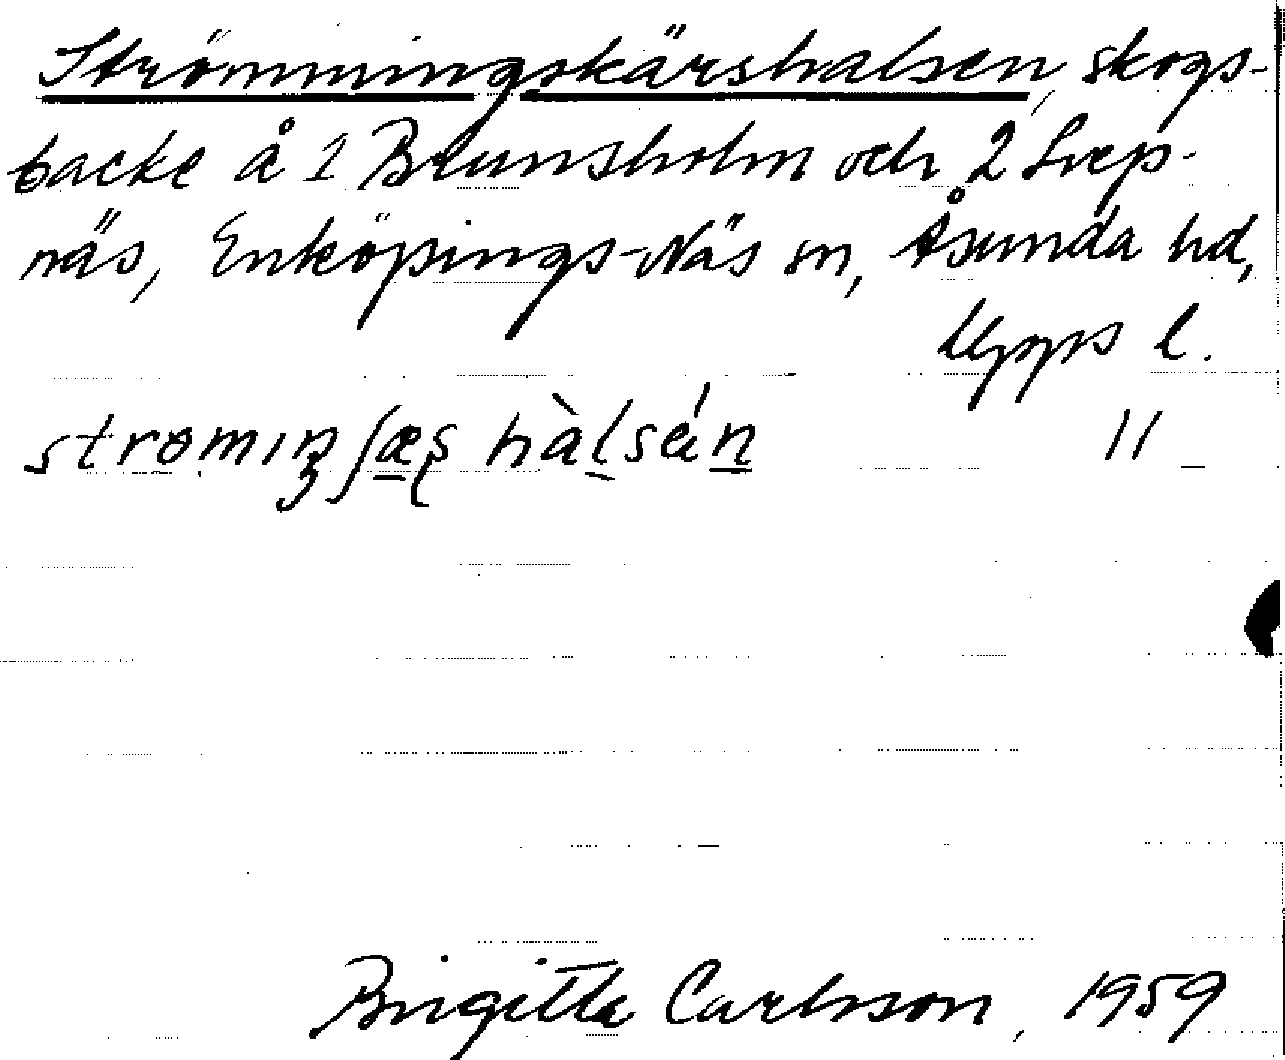 Strömmingskärshalsen, skogs-
backe å 1 Brunsholm och 2 Svep-
näs, Enköpings-Näs sn, Åsunda hd,
Upps l.
hàlsén 11
Birgitta Carlsson, 1959